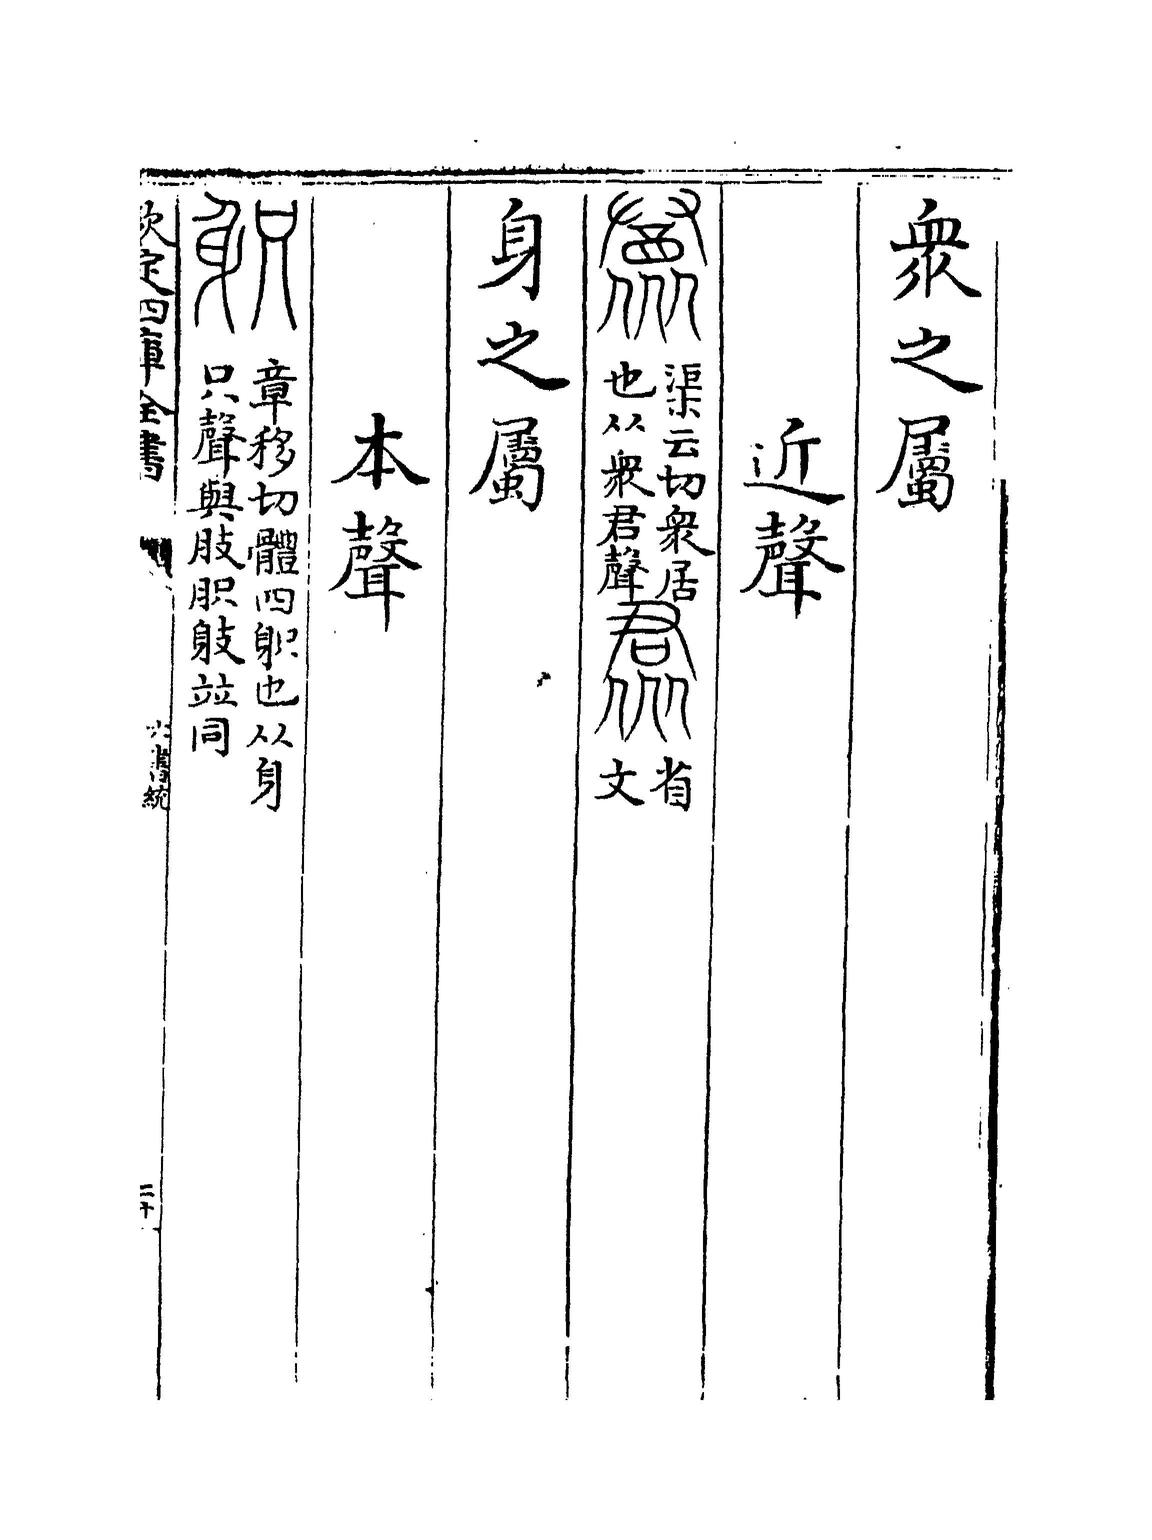 衆之屬
近聲
渠云切衆居
也从衆君聲
省
文
身之屬
本聲
章移切體四躬也从身
只聲與肢胑躳並同
欽定四庫全書
六書統
二十